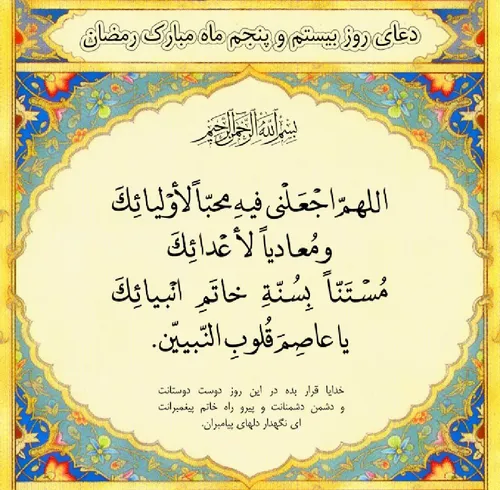 دعای روز بیستم و پنجم ماه مبارک رمضان
بسم الله الرحمن الرحیم
اللهمّ اجْعَلْنی فیهِ محبّاً لأوْلیائِكَ
ومُعادیاً لأعْدائِكَ
مُسْتَنّاً بِسُنّةِ خاتَمِ انْبیائِكَ
یا عاصِمَ قُلوبِ النّبیّین.
خدایا قرار بده در این روز دوست دوستانت
و دشمن دشمنانت و پیرو راه خاتم پیغمبرانت
ای نگهدار دلهای پیامبران.